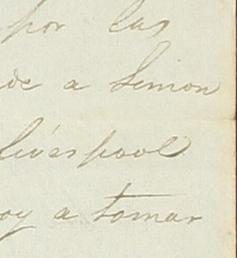 por las
de a Simon
Liverpool
oy a tomar